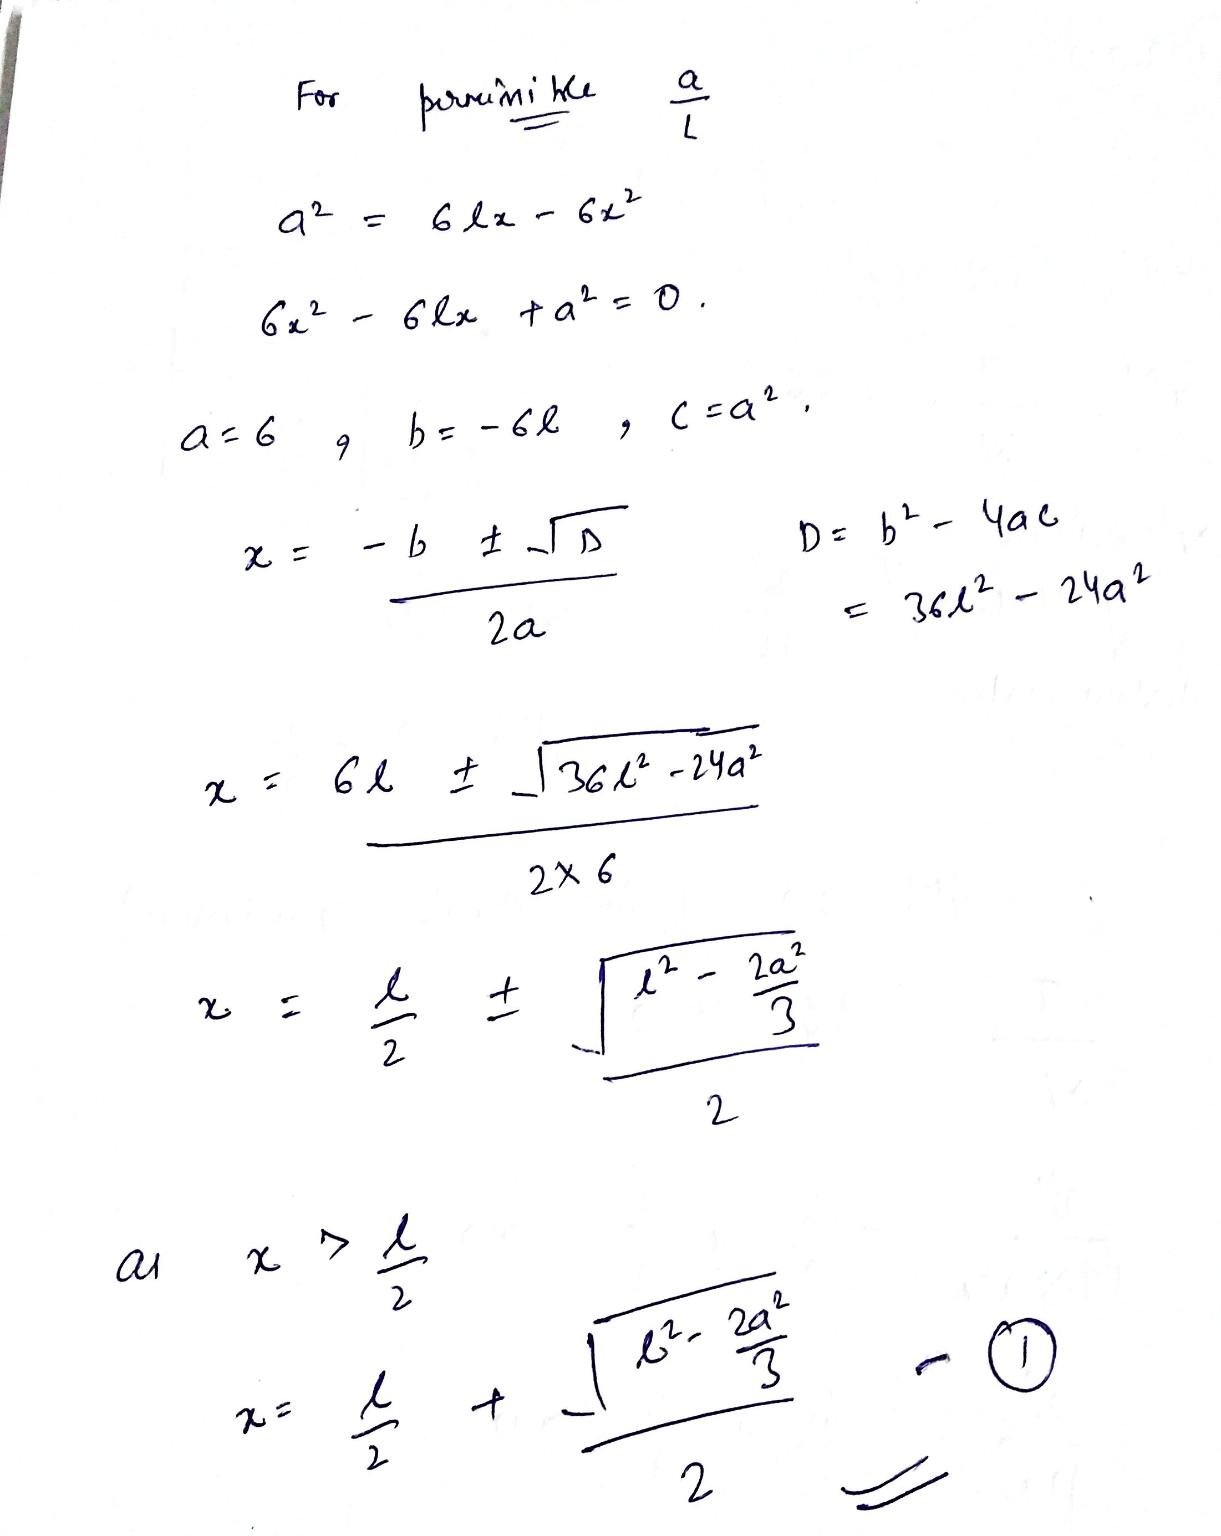 For permissible a/L
a² = 6lx - 6x²
6x² - 6lx + a² = 0.
a = 6 , b = -6l , c = a² .
x = (-b ± √D) / 2a D = b² - 4ac
= 36l² - 24a²
x = (6l ± √(36l² - 24a²)) / (2×6)
x = l/2 ± √(l² - 2a²/3) / 2
as x > l/2
x = l/2 + √(l² - 2a²/3) / 2 - ①